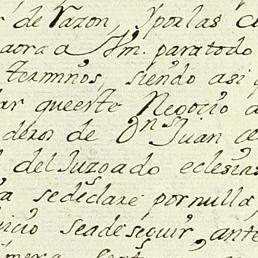 de razon, y por las
aora a Vm. para todo
terminos, siendo asi q
dar que este Negocio a
dezo de Dn Juan
del Juzgado eclesias
sedeclare por nulla,
icio seadeseguir, ante